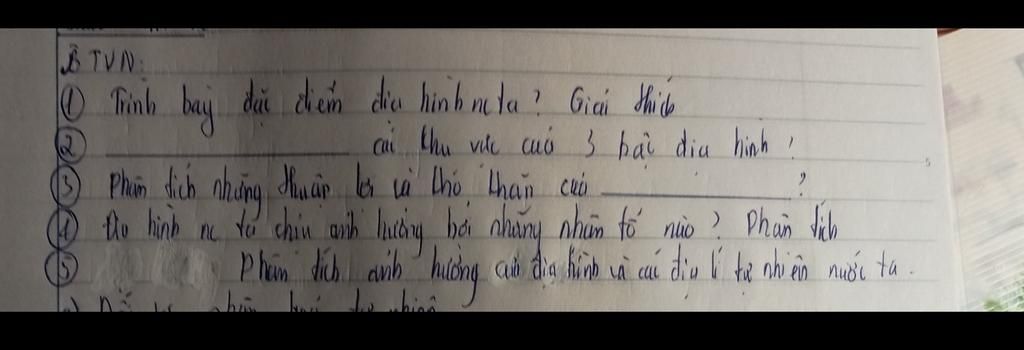 BTVN:
① Trình bày đặc điểm địa hình nc ta? Giải thích
② ____________ các khu vực của 3 bậc địa hình?
③ Phân tích những thuận lợi và khó khăn của ____________?
④ Địa hình nc ta chịu ảnh hưởng bởi những nhân tố nào? Phân tích
⑤ Phân tích ảnh hưởng của địa hình và các địa lí tự nhiên nước ta.